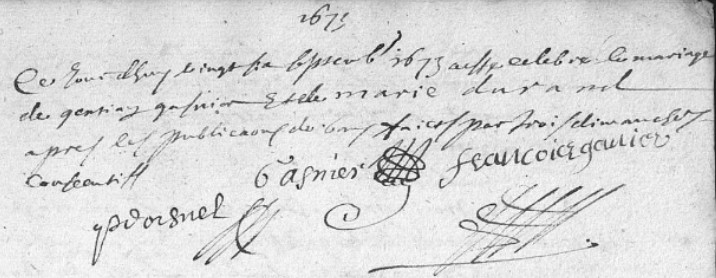 1673
Ce Jourdhuy vingt six septemb 1673 a este celebre le mariage
de gentian gasnier Et de marie durand
apres les publicaons de bans faictes par trois dimanches
Consecutifs
Gasnier francois ganier